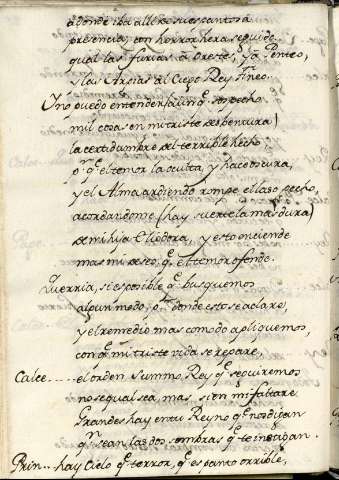 adonde iba alli de sus espantosa
presencia, con horror hera seguido
qual las furias a Oreste, y a Penteo,
y las Arpias al Ciego Rey fineo.
Y no puedo entender (aunq̃ sospecho
mil cosas en mi triste desbentura)
la certidumbre del terrible hecho,
pr. q̃ el temor la oculta, y hace oscura,
y el Alma ardiendo rompe el laso pecho,
acordandome (hay suerte la mas dura)
de mi hija Eliodora, y esto enciende
mas mi deseo, q̃ el temor ofende.
Querria, si es posible q̃ busquemos
algun modo, pr. donde esto se aclare,
y el remedio mas comodo apliquemos,
con q̃ mi triste vida se repare,
Calce ..... el orden Summo Rey q̃ seguiremos
no se qual sea, mas si en mi faltare
Grandes hay en tu Reyno q̃ nos digan
qn. sean las dos sombras q̃ te instigan.
Prin.. hay Cielo q̃ terror, q̃ espanto orrible,